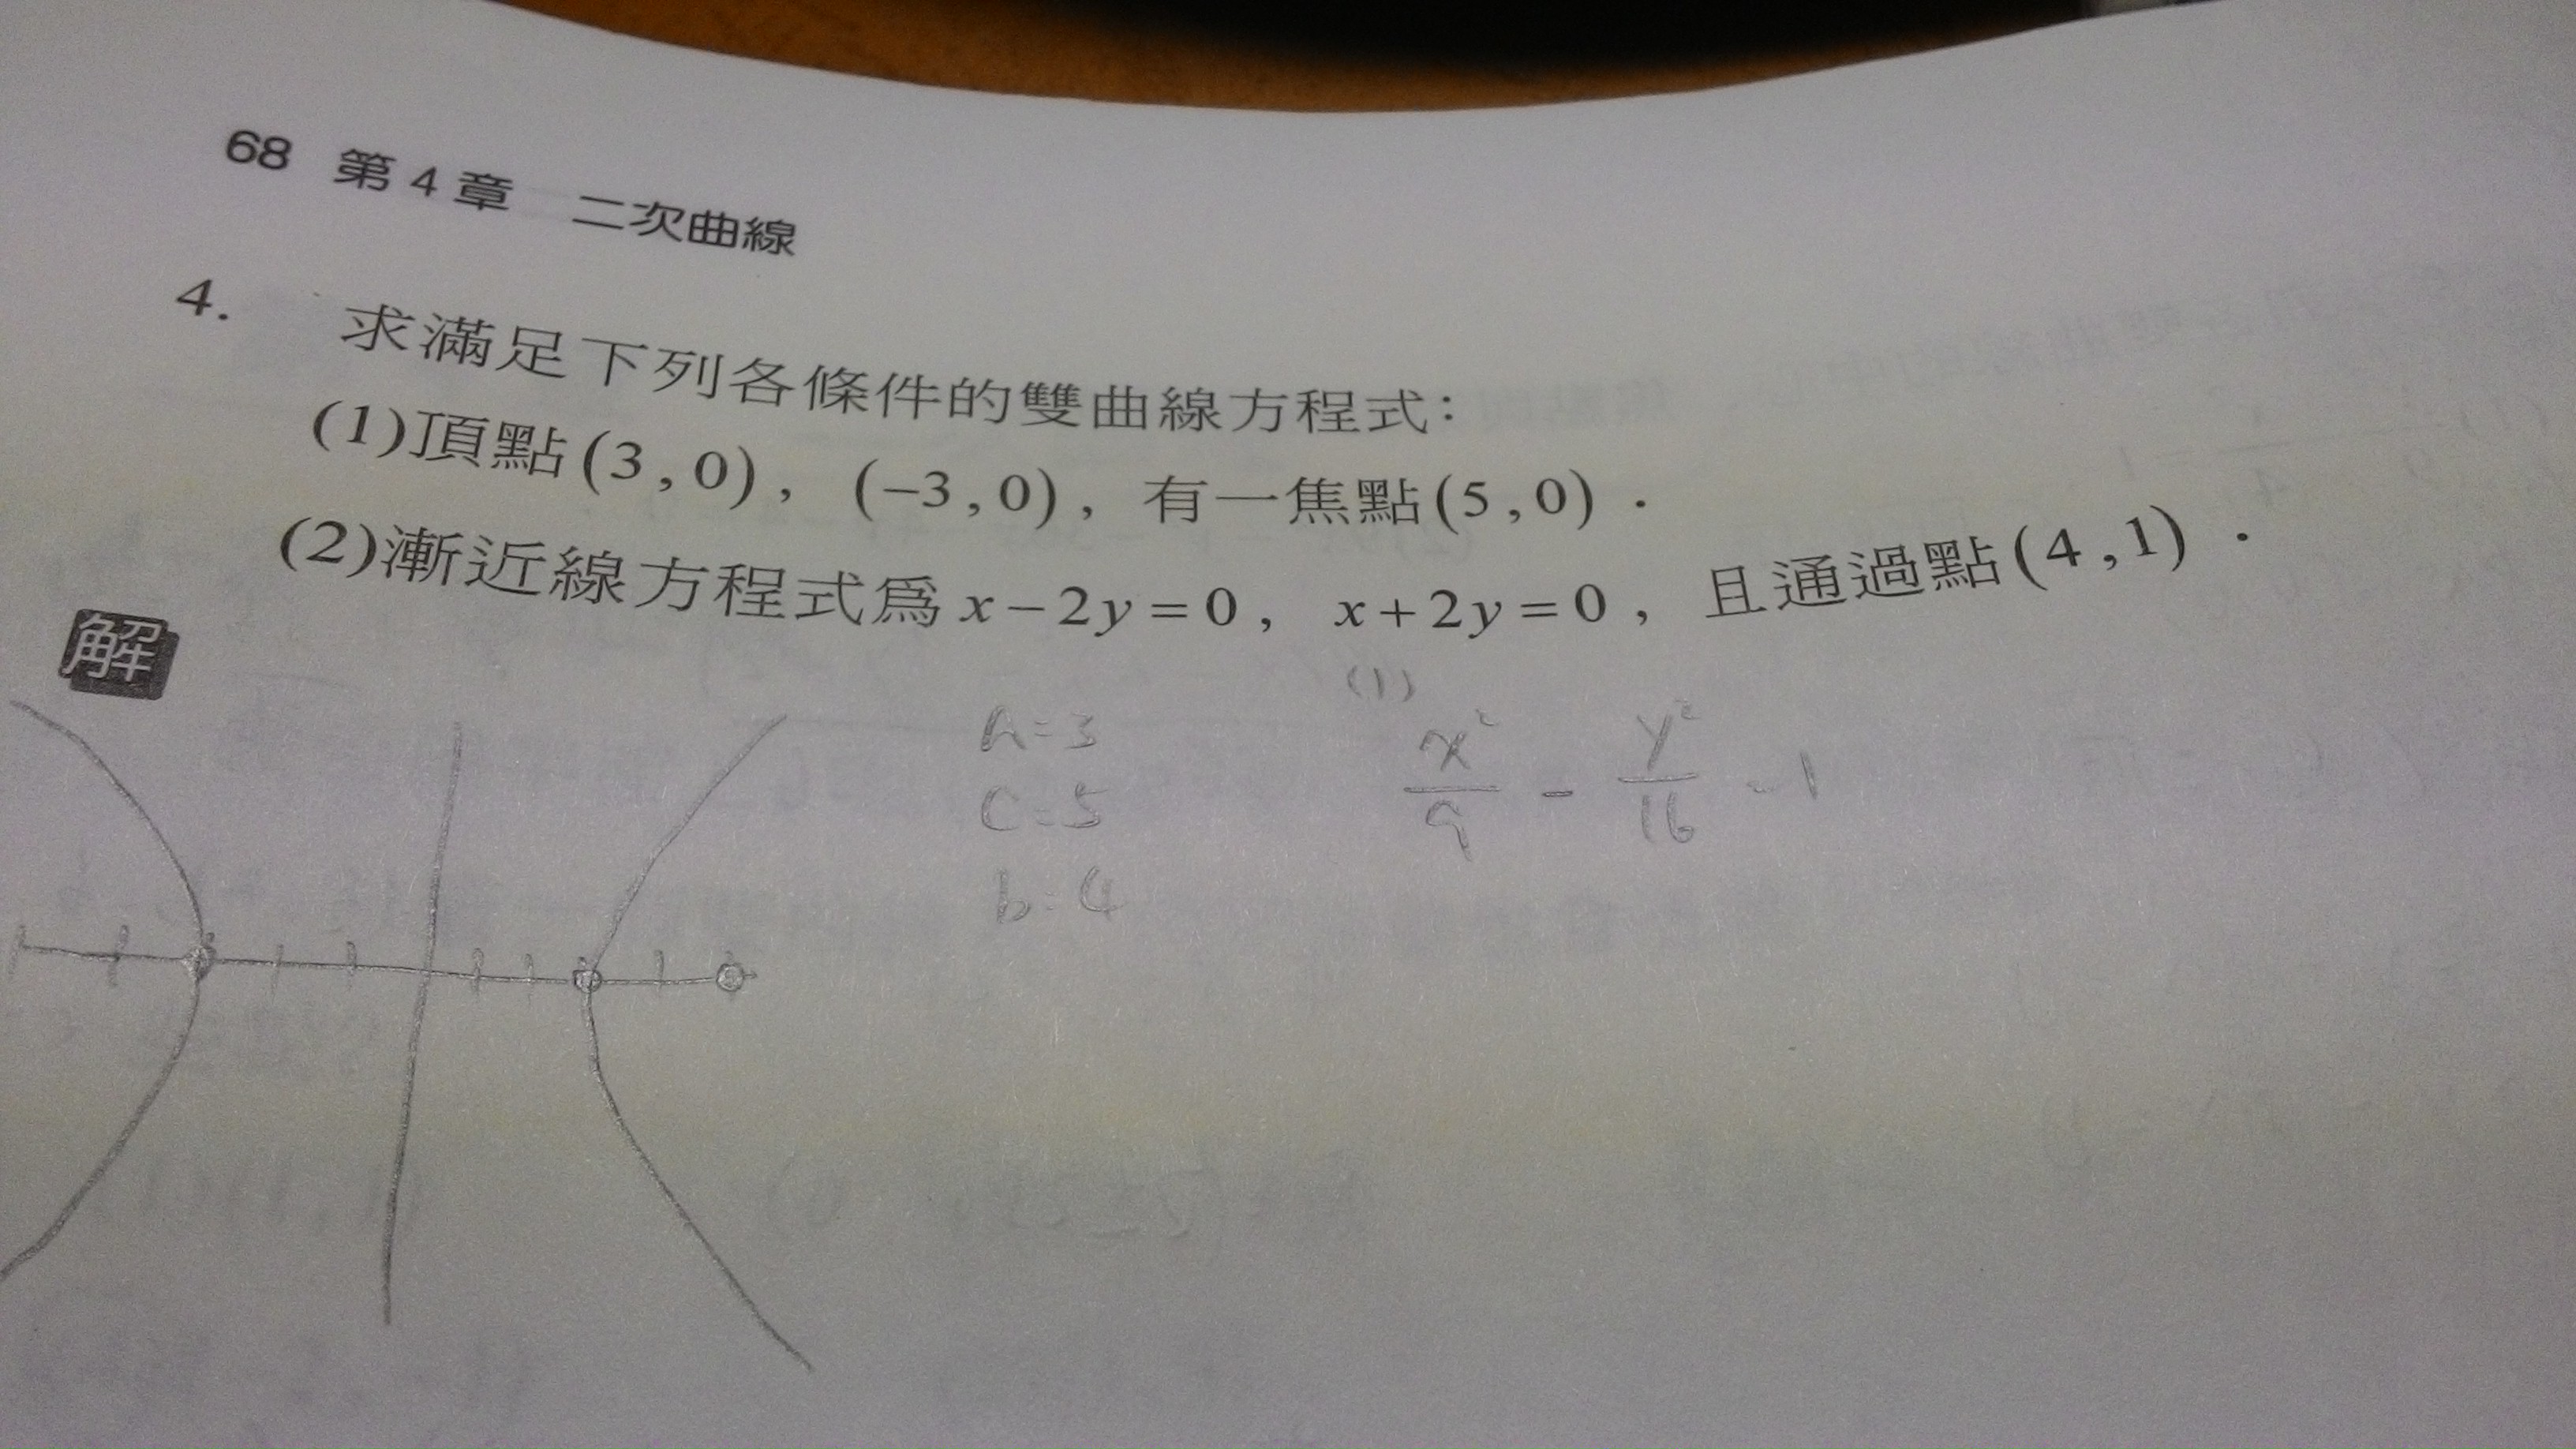 68 第4章 二次曲線
4. 求滿足下列各條件的雙曲線方程式：
(1)頂點(3,0), (−3,0), 有一焦點(5,0).
(2)漸近線方程式為 x−2y=0, x+2y=0, 且通過點(4,1).
解
(1)
a=3
c=5
b=4
x²/9 − y²/16 = 1